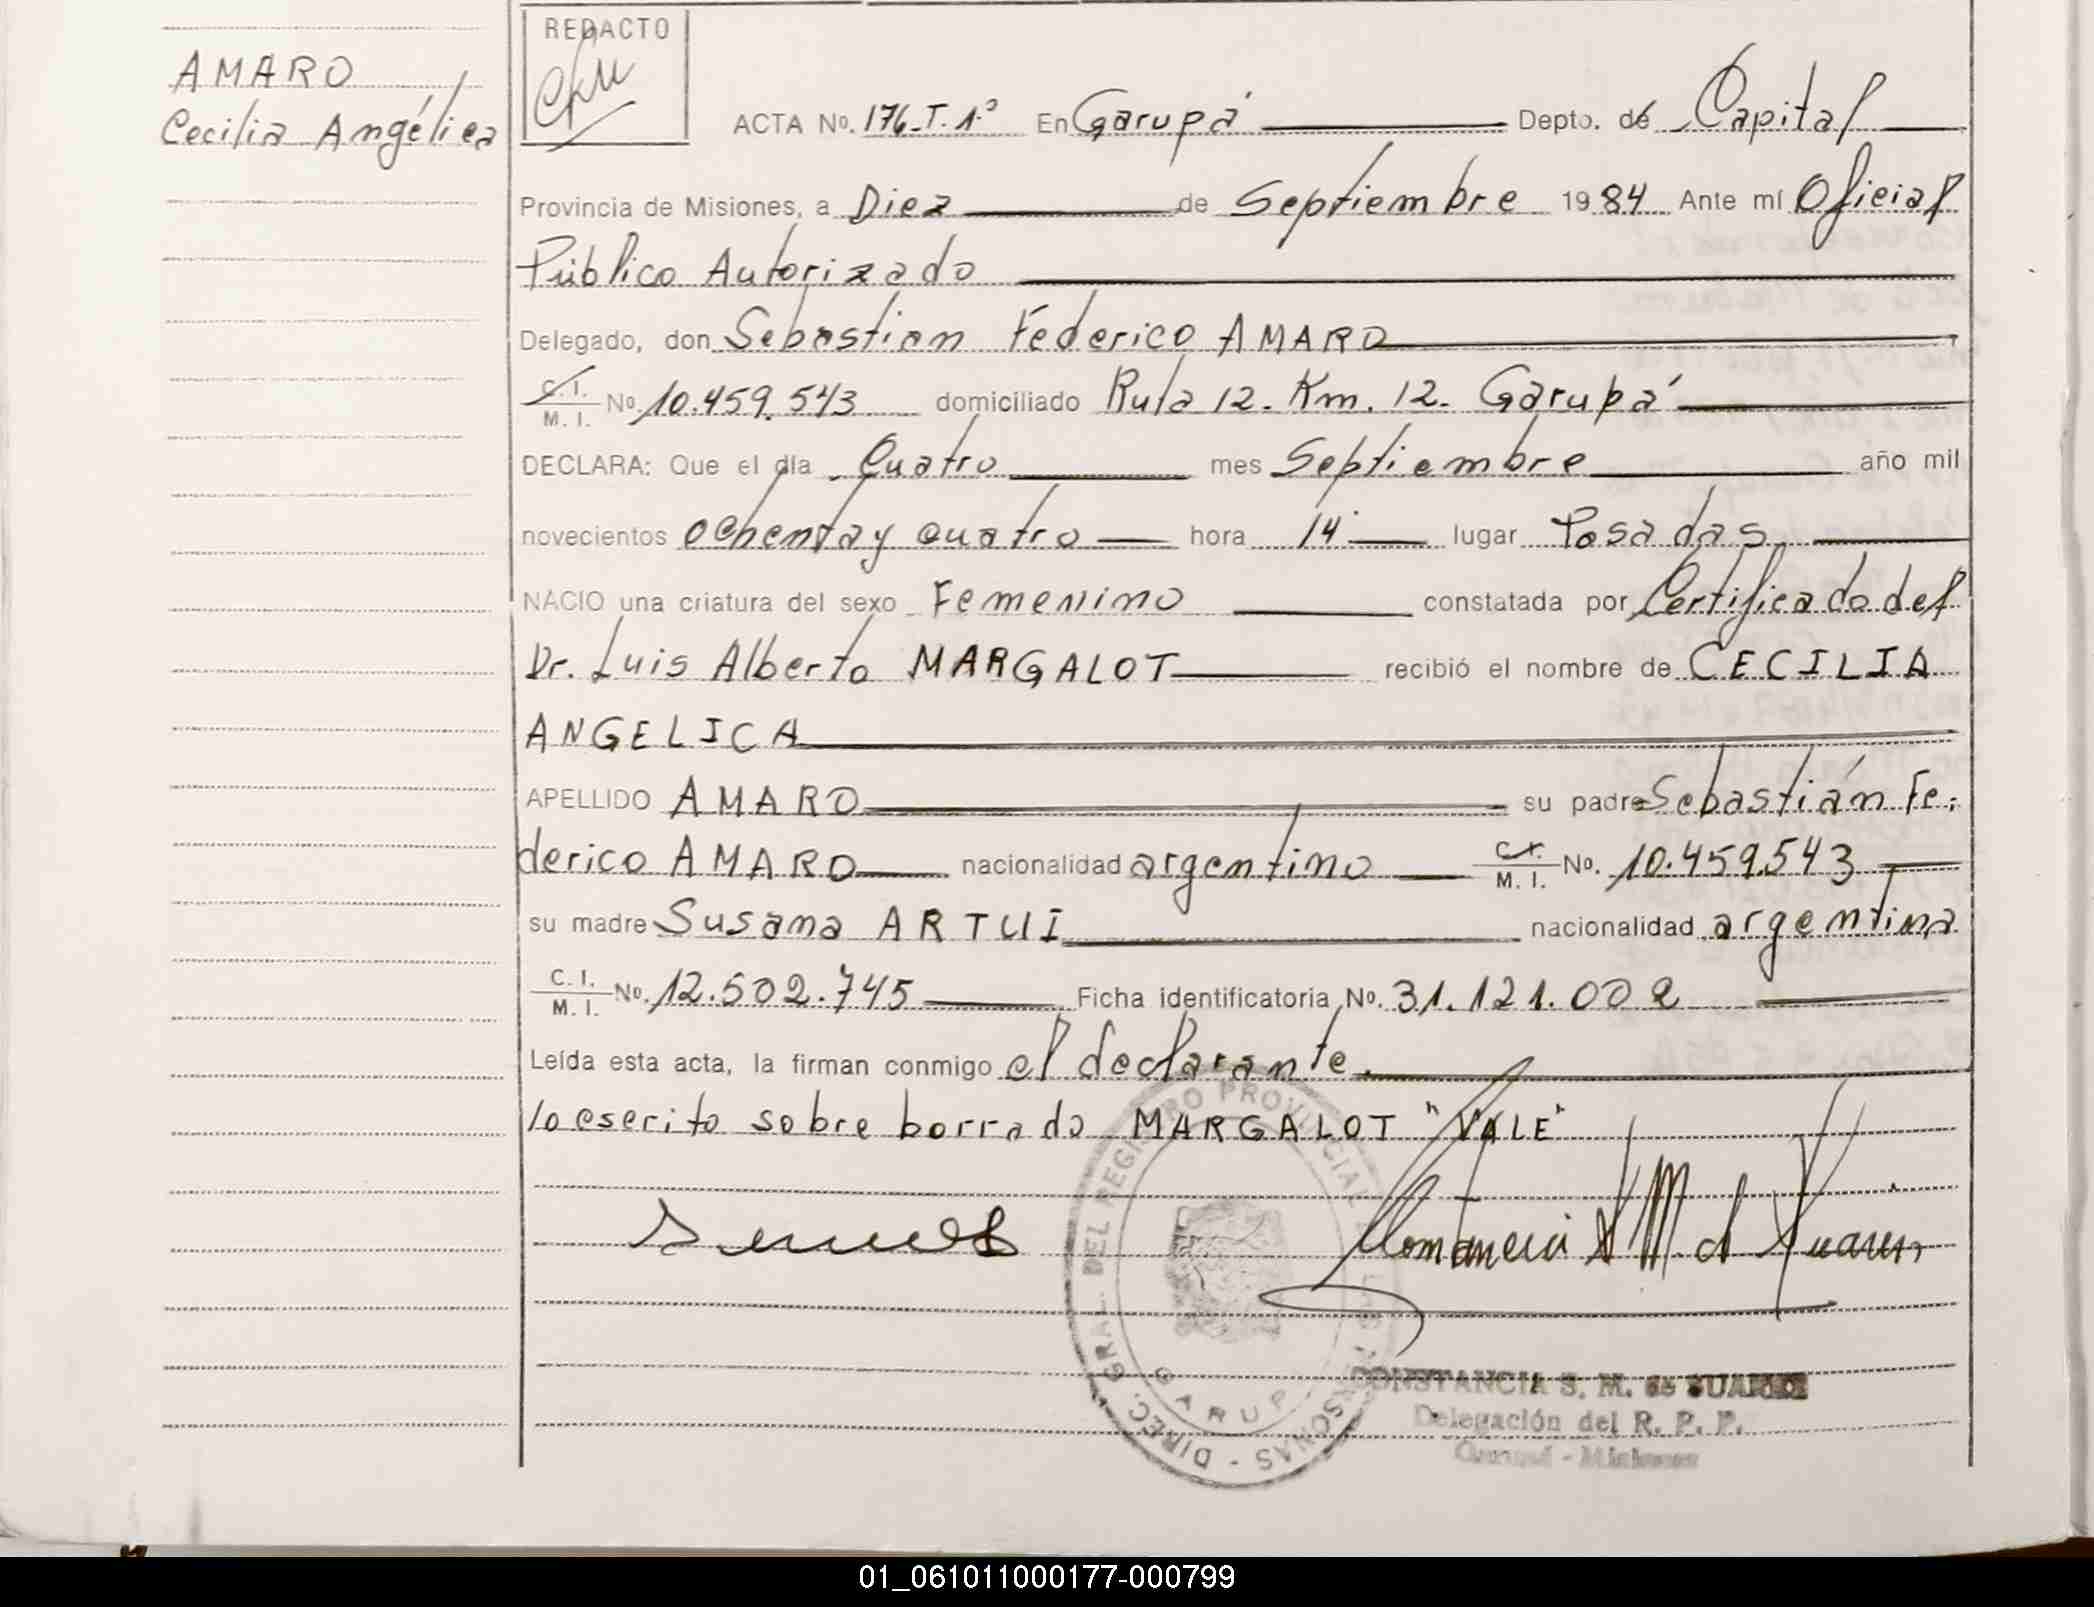 AMARO
Cecilia Angélica
REDACTO
ACTA No. 176-T.1º En Garupá Depto. de Capital
Provincia de Misiones, a Diez de Septiembre 1984 Ante mí Oficial
Público Autorizado
Delegado, don Sebastian Federico AMARO
C.I. M.I. No. 10.459.543 domiciliado Ruta 12- Km. 12- Garupá
DECLARA: Que el día Cuatro mes Septiembre año mil
novecientos ochenta y cuatro hora 14 lugar Posadas
NACIO una criatura del sexo Femenino constatada por Certificado del
Dr. Luis Alberto MARGALOT recibió el nombre de CECILIA
ANGELICA
APELLIDO AMARO su padre Sebastián Fe-
derico AMARO nacionalidad argentino C.I. M.I. No. 10.459.543
su madre Susana ARTUI nacionalidad argentina
C.I. M.I. No. 12.502.745 Ficha identificatoria No. 31.121.002
Leída esta acta, la firman conmigo el declarante.
lo escrito sobre borrado MARGALOT "VALE"
DIREC. GRAL. DEL REGISTRO PROVINCIAL DE LAS PERSONAS
GARUPA
CONSTANCIA S. M. de SUAREZ
Delegación del R. P. P.
Garupá - Misiones
01_061011000177-000799